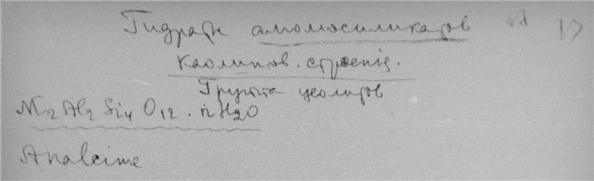 Гидраты алюмосиликатов 17
Каолинов. строенія.
Группа цеолитов
M₂Al₂Si₄O₁₂·nH₂O
Analcime